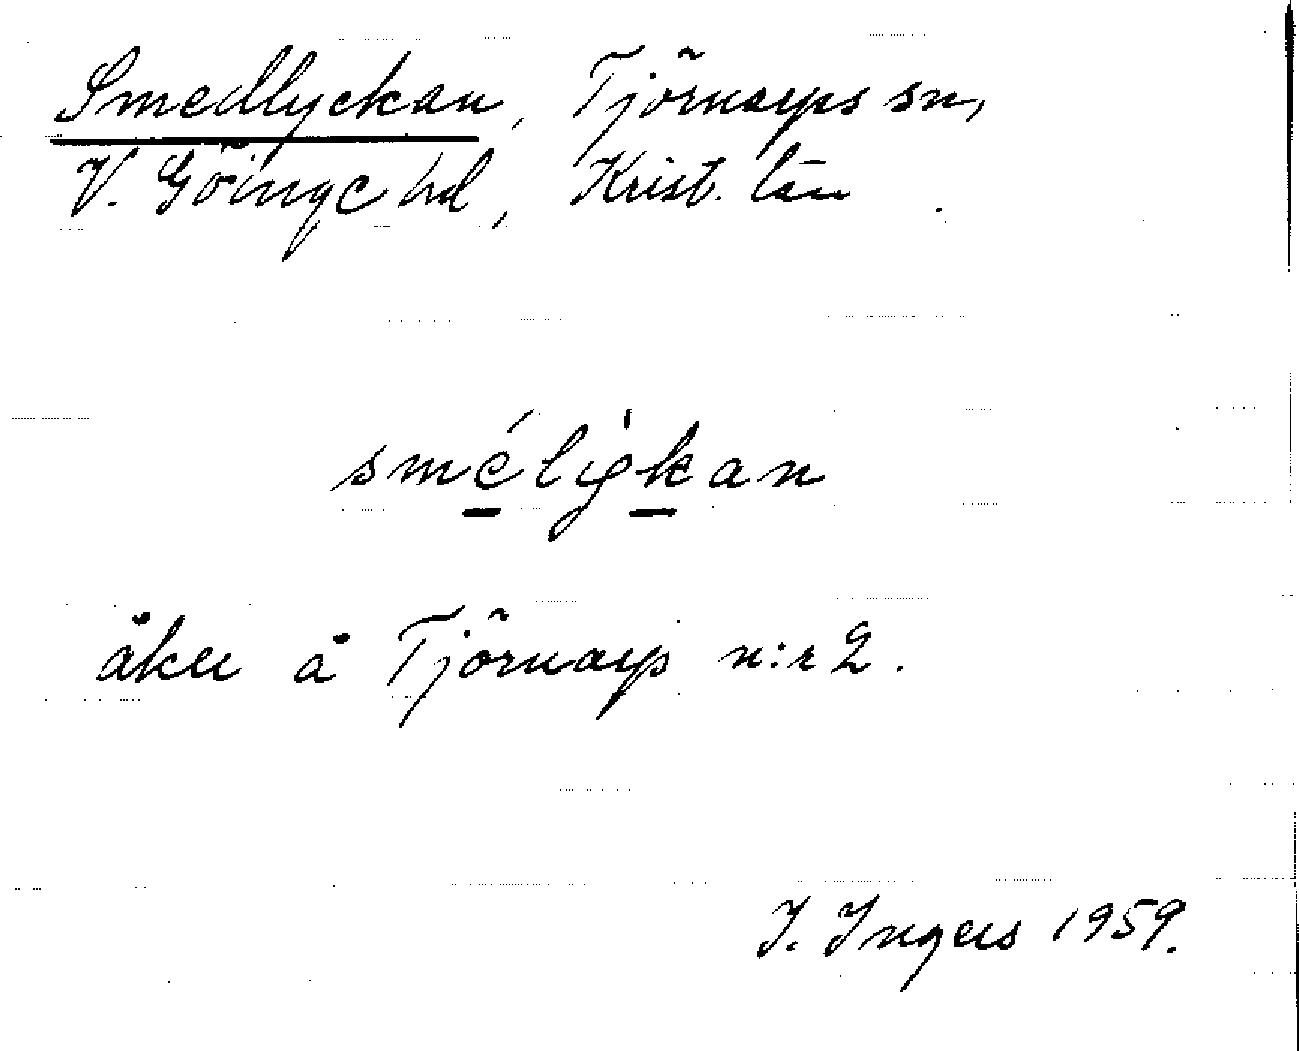 Smedlyckan, Tjörnarps sn,
V. Göinge hd, Krist. län
smélýkan
åker å Tjörnarp n:r 2.
I. Ingers 1959.